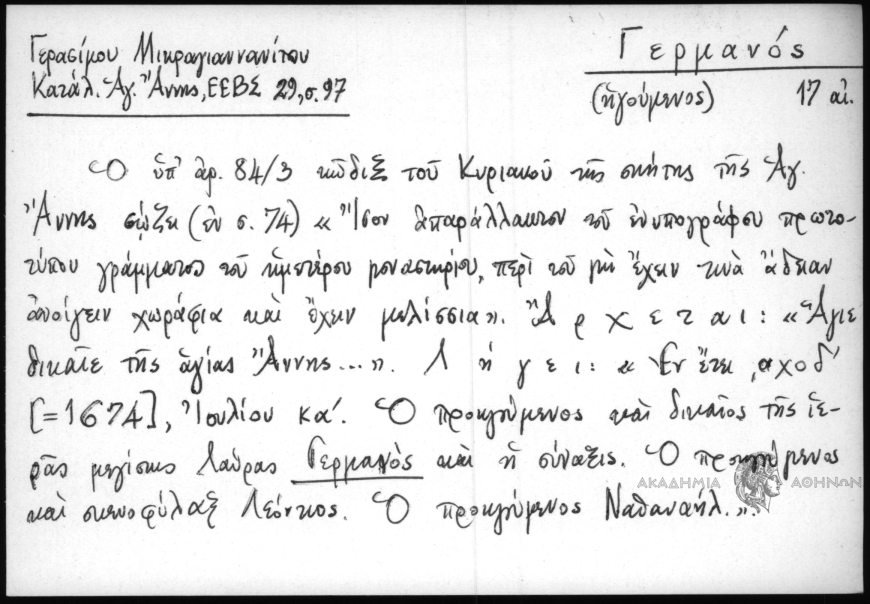 Γερασίμου Μικραγιαννανίτου
Κατάλ. Ἁγ. Ἄννης, ΕΕΒΣ 29, σ. 97
Γερμανός
(ἡγούμενος) 17 αἰ.
Ὁ ὑπ' ἀρ. 84/3 κῶδιξ τοῦ Κυριακοῦ τῆς σκήτης τῆς Ἁγ.
Ἄννης σῴζει (ἐν σ. 74) « Ἴσον ἀπαράλλακτον τοῦ ἐνυπογράφου πρωτο-
τύπου γράμματος τοῦ ἡμετέρου μοναστηρίου, περὶ τοῦ μὴ ἔχειν τινὰ ἄδειαν
ἀνοίγειν χωράφια καὶ ἔχειν μελίσσια». Ἄρχεται: «Ἅγιε
δικαῖε τῆς ἁγίας Ἄννης...». Λήγει: « Ἐν ἔτει ͵αχοδ'
[=1674], Ἰουλίου κα'. Ὁ προηγούμενος καὶ δικαῖος τῆς ἱε-
ρᾶς μεγίστης Λαύρας Γερμανὸς καὶ ἡ σύναξις. Ὁ προηγούμενος
καὶ σκευοφύλαξ Λεόντιος. Ὁ προηγούμενος Ναθαναήλ.».
ΑΚΑΔΗΜΙΑ ΑΘΗΝΩΝ